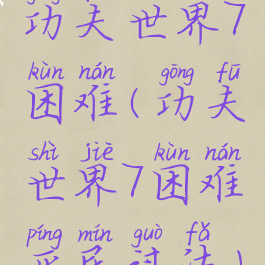 功夫世界7
kùn nán gōng fū
困难(功夫
shì jiè kùn nán
世界7困难
píng mín guò fǎ
平民过法)